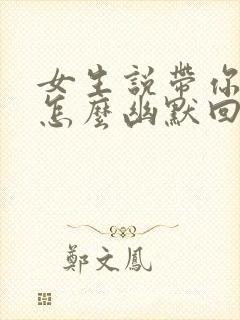 女生說帶你
怎麼幽默回
鄭文鳳